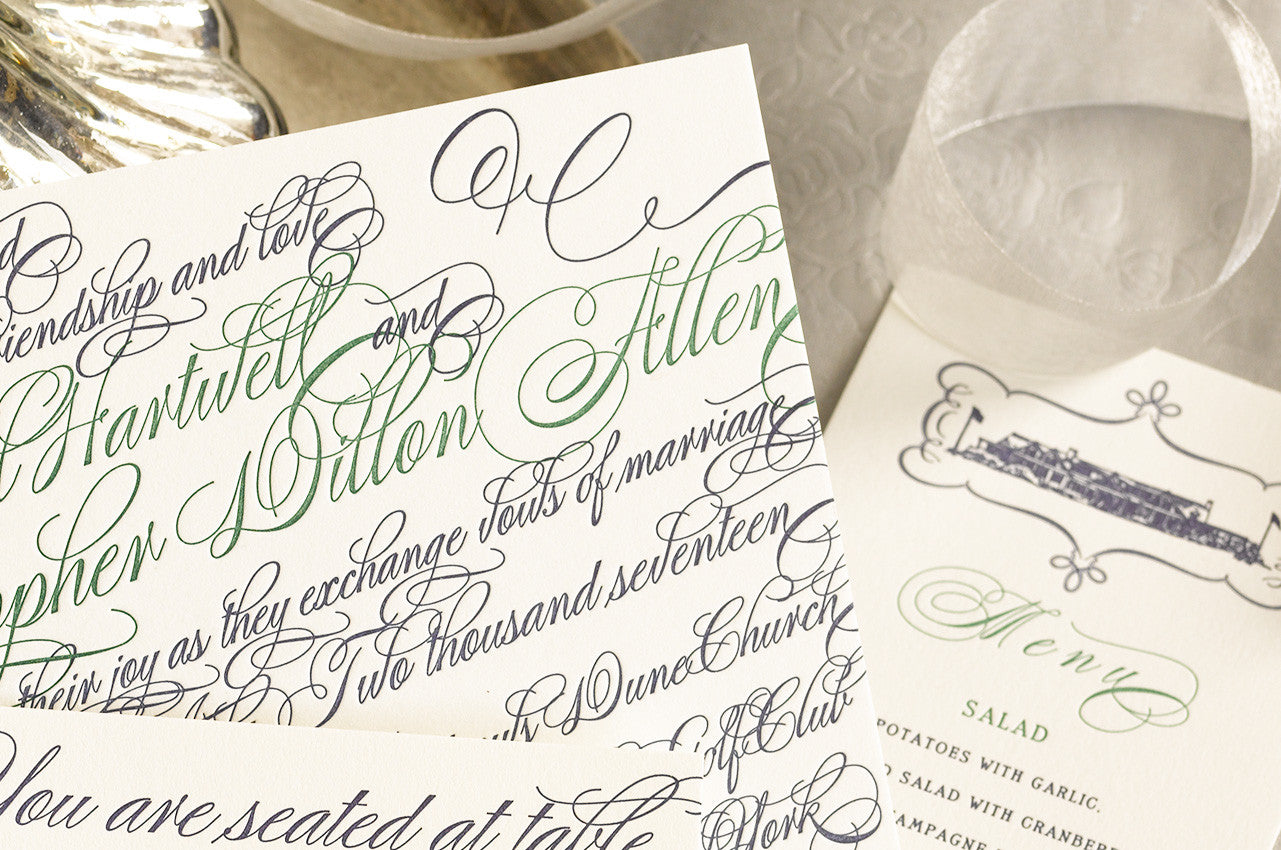 friendship and love
Hartwell and
Dillon Allen
their joy as they exchange vows of marriage
Two thousand seventeen
Dune Church
Golf Club
York
You are seated at table
Menu
SALAD
POTATOES WITH GARLIC.
SALAD WITH